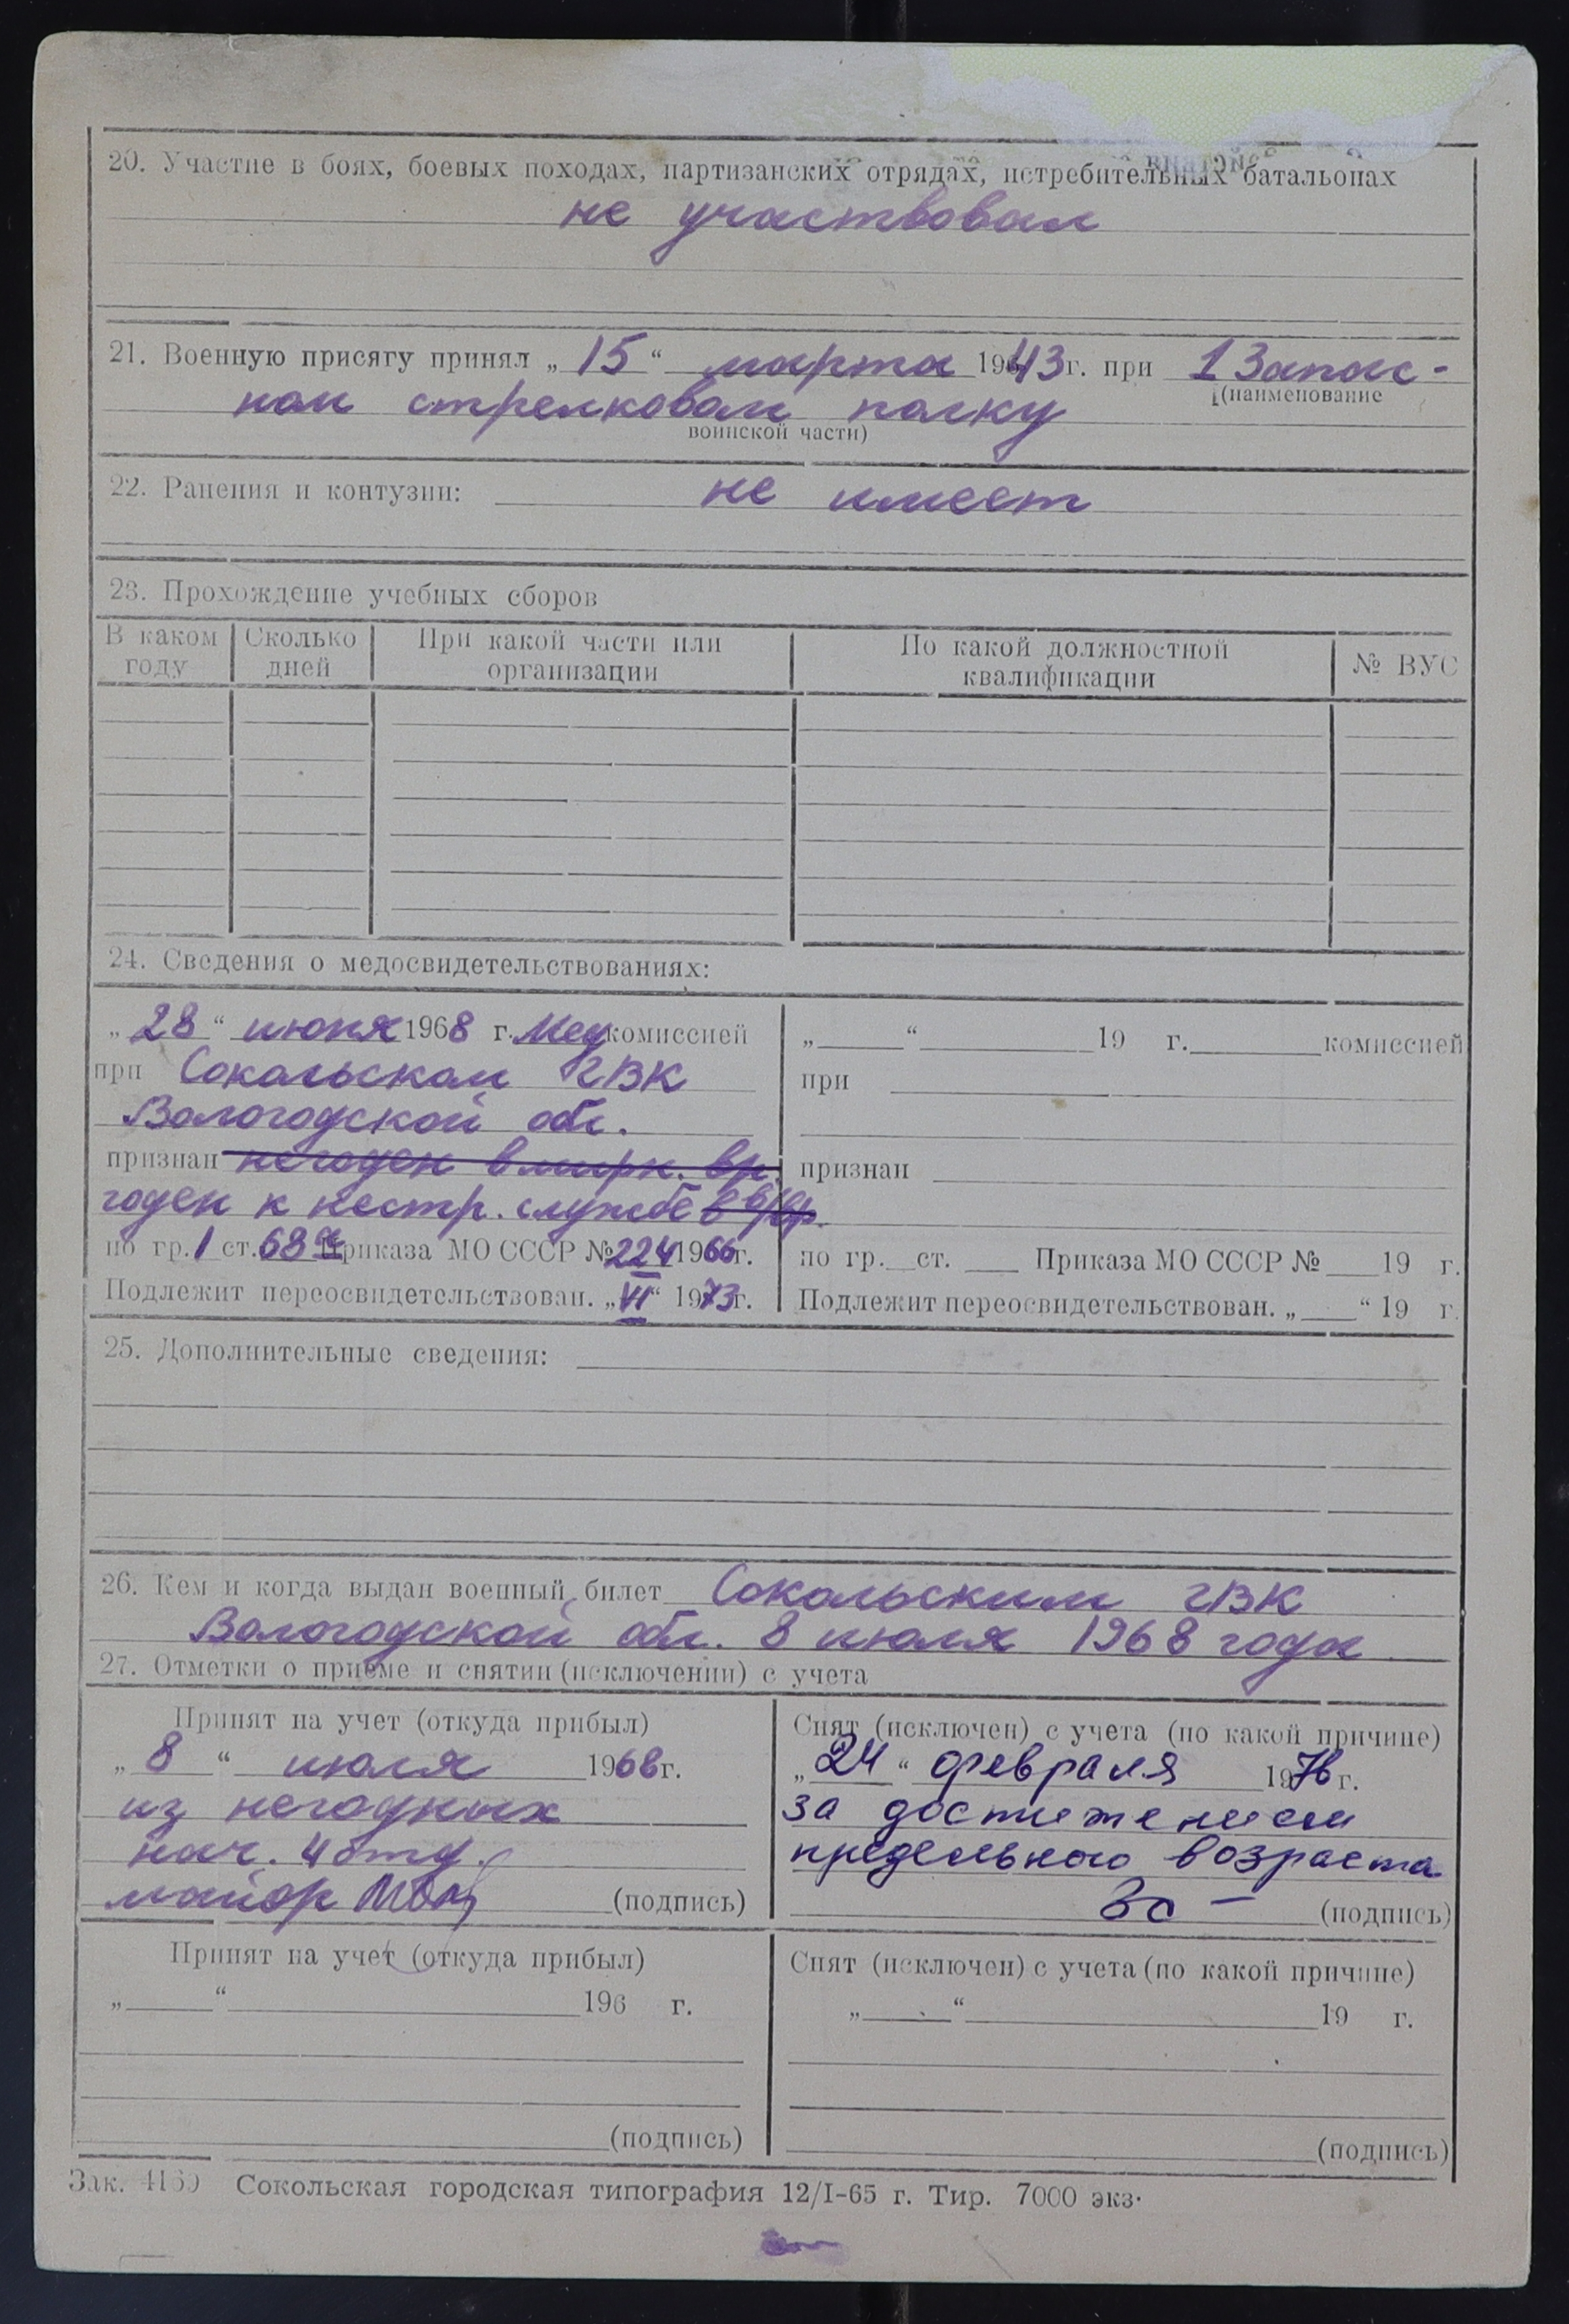 20. Участие в боях, боевых походах, партизанских отрядах, истребительных батальонах
не участвовал
21. Военную присягу принял „15“ марта 1943 г. при 1 Запас-
(наименование
ном стрелковом полку
воинской части)
22. Ранения и контузии: не имеет
23. Прохождение учебных сборов
В каком году | Сколько дней | При какой части или организации | По какой должностной квалификации | № ВУС
24. Сведения о медосвидетельствованиях:
„28“ июня 1968 г. Мед комиссией
при Сокольском ГВК
Вологодской обл.
признан негоден в мирн. вр.
годен к нестр. службе в в/вр.
по гр. 1 ст. 68 Приказа МО СССР № 224 1966 г.
Подлежит переосвидетельствован. „VI“ 1973 г.
„ “ 19 г. комиссией
при
признан
по гр. ст. Приказа МО СССР № 19 г.
Подлежит переосвидетельствован. „ “ 19 г.
25. Дополнительные сведения:
26. Кем и когда выдан военный билет Сокольским ГВК
Вологодской обл. 8 июля 1968 года
27. Отметки о приеме и снятии (исключении) с учета
Принят на учет (откуда прибыл)
„8“ июля 1968 г.
из негодных
нач. 4 отд.
майор (подпись)
Снят (исключен) с учета (по какой причине)
„24“ февраля 1976 г.
за достижением
предельного возраста
(подпись)
Принят на учет (откуда прибыл)
„ “ 196 г.
(подпись)
Снят (исключен) с учета (по какой причине)
„ “ 19 г.
(подпись)
Зак. 4160 Сокольская городская типография 12/I-65 г. Тир. 7000 экз.